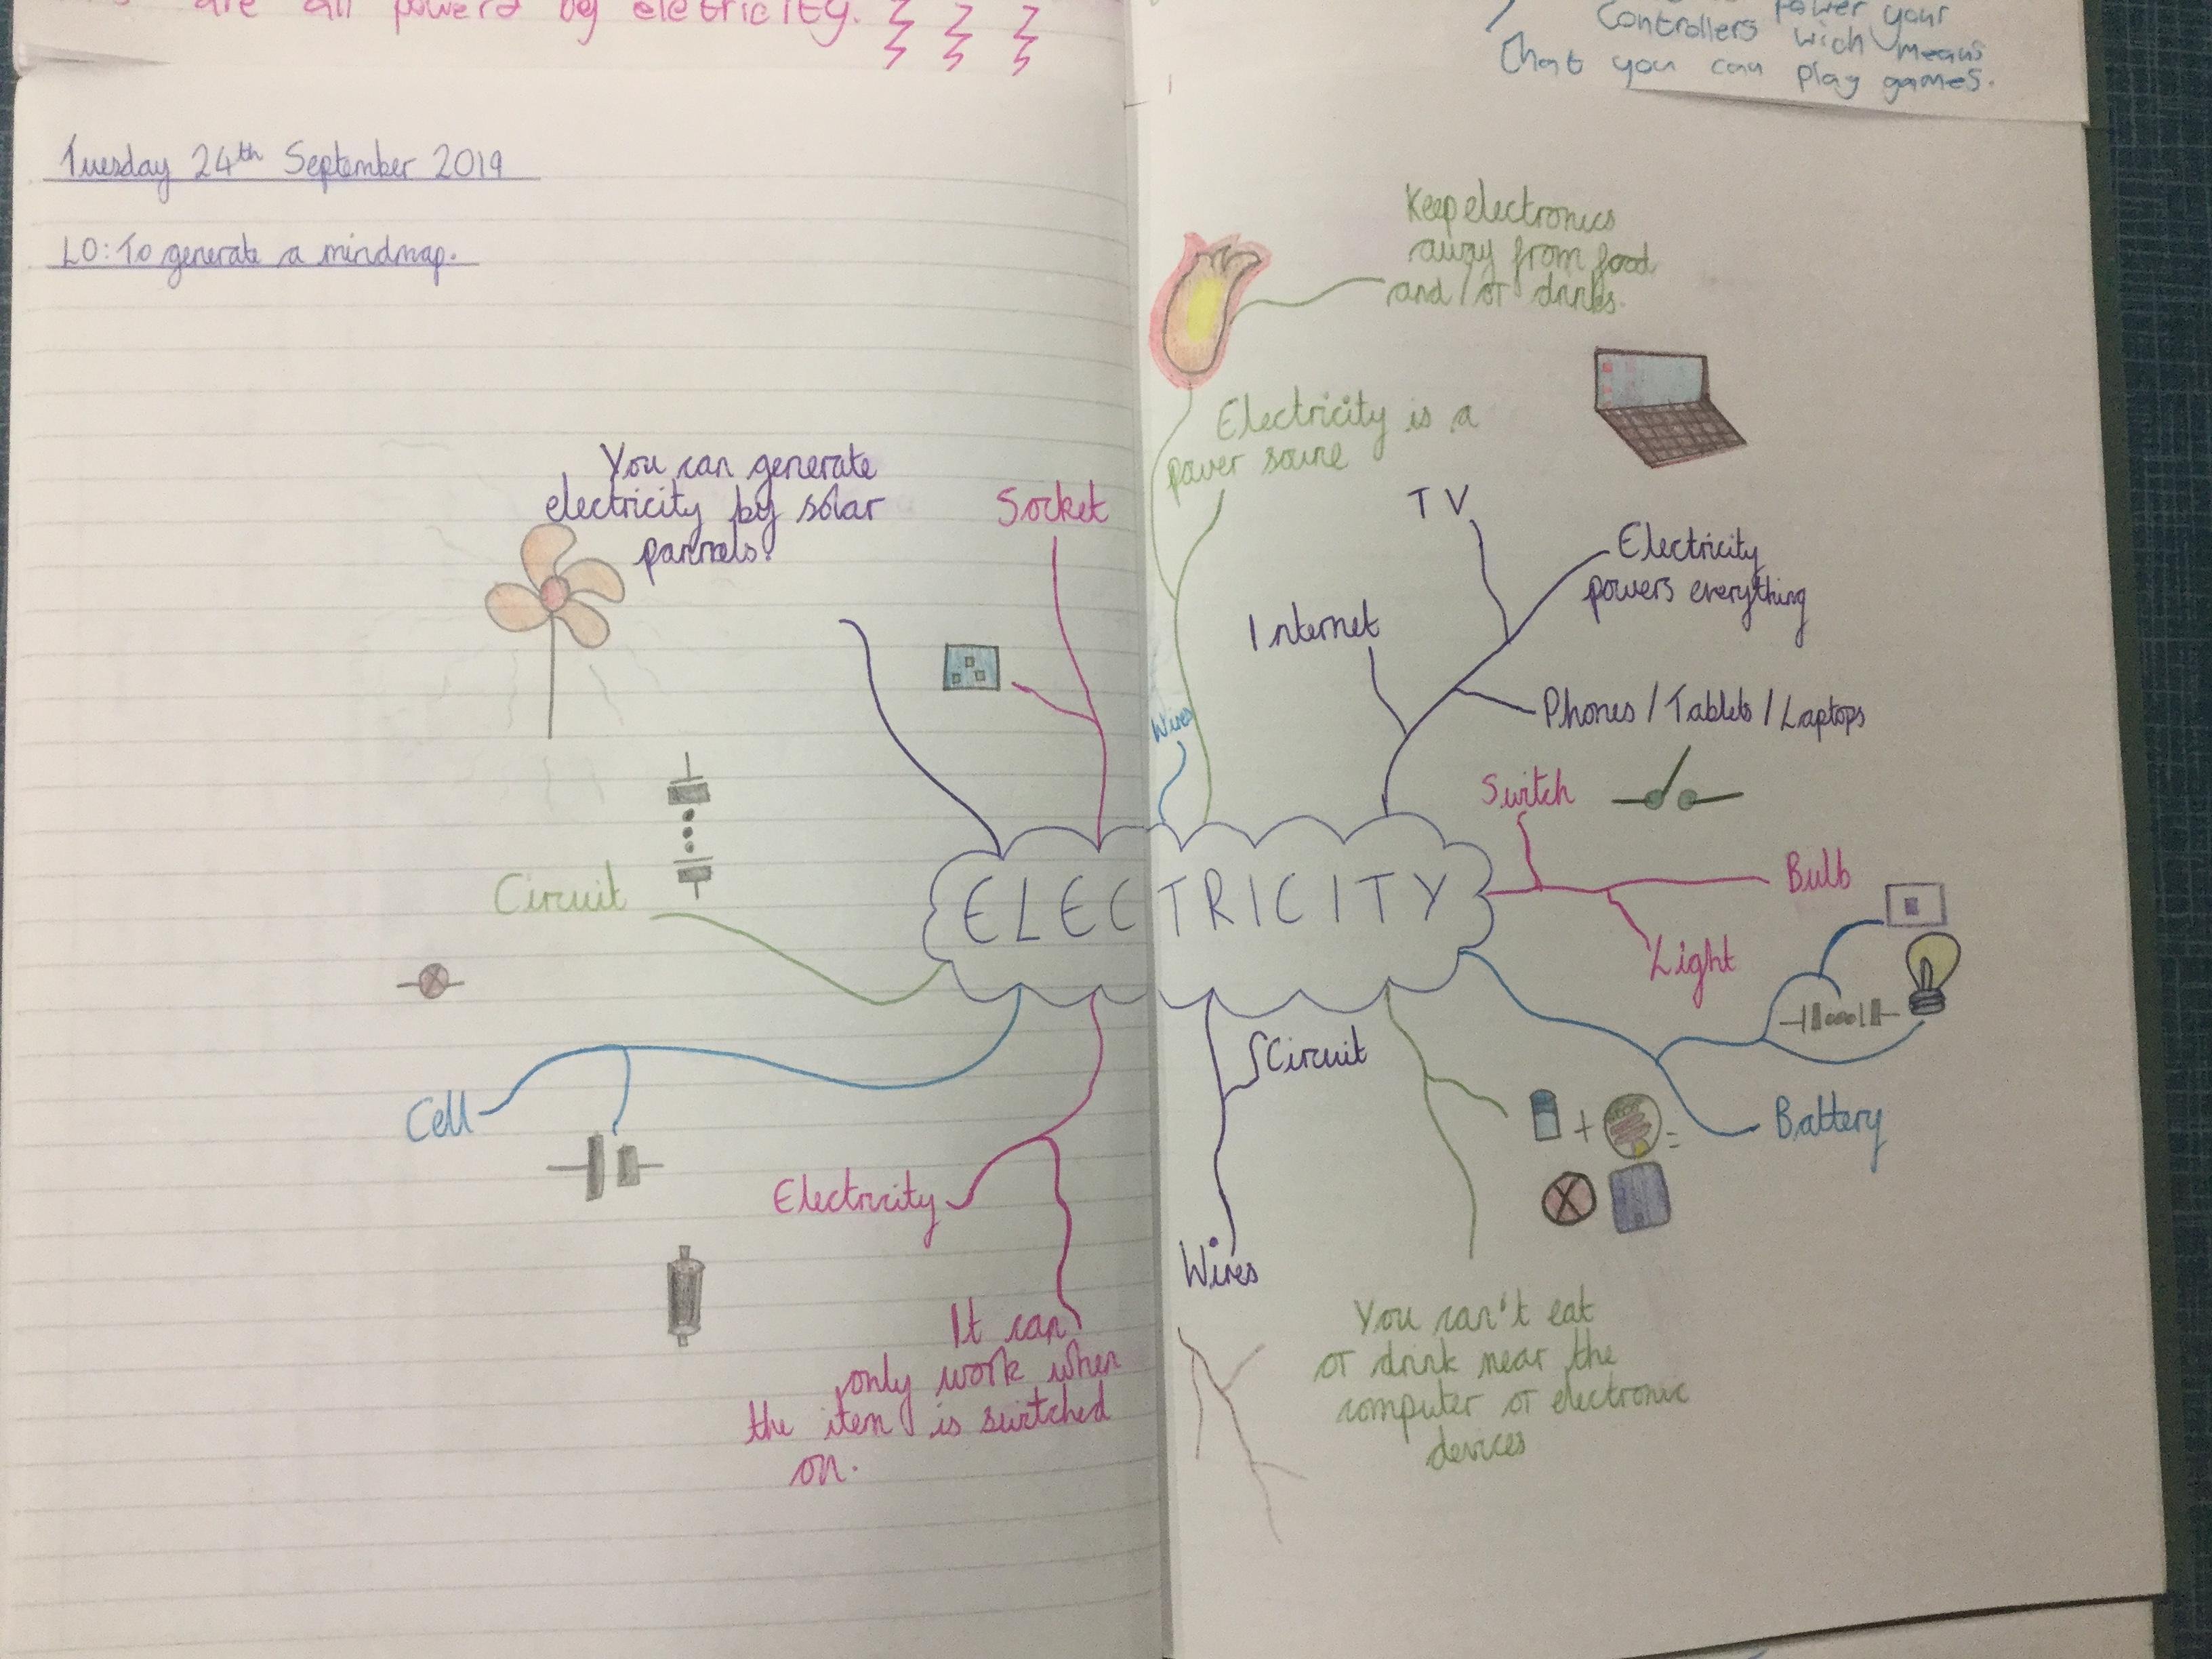 are all powerd by eletricity.
Power your
Controllers wich means
that you can play games.
Tuesday 24th September 2019
LO: To generate a mindmap.
You can generate
electricity by solar
pannels.
Socket
Circuit
Cell
Electricity
It can
only work when
the item is switched
on.
ELECTRICITY
Keep electronics
away from food
and/or drinks.
Electricity is a
power source
Wires
TV
Internet
Electricity
powers everything
Phones / Tablets / Laptops
Switch
Bulb
Light
Battery
Circuit
+
=
Wires
You can't eat
or drink near the
computer or electronic
devices